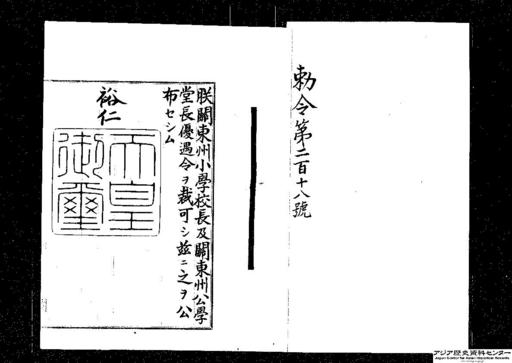 勅令第二百十八號
朕關東州小學校長及關東州公學
堂長優遇令ヲ裁可シ茲ニ之ヲ公
布セシム
裕仁
天皇
御璽
アジア歴史資料センター
Japan Center for Asian Historical Records